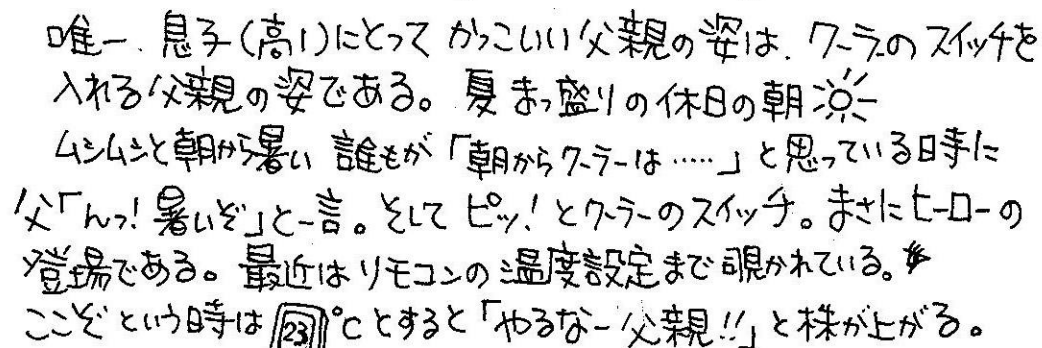 唯一、息子(高1)にとって かっこいい父親の姿は、クーラーのスイッチを
入れる父親の姿である。夏まっ盛りの休日の朝
ムシムシと朝から暑い 誰もが「朝からクーラーは……」と思っている時に
父「んっ!暑いぞ」と一言。そして ピッ!とクーラーのスイッチ。まさにヒーローの
登場である。最近はリモコンの温度設定まで覗かれている。
ここぞという時は 23℃とすると「やるなー父親!!」と株が上がる。